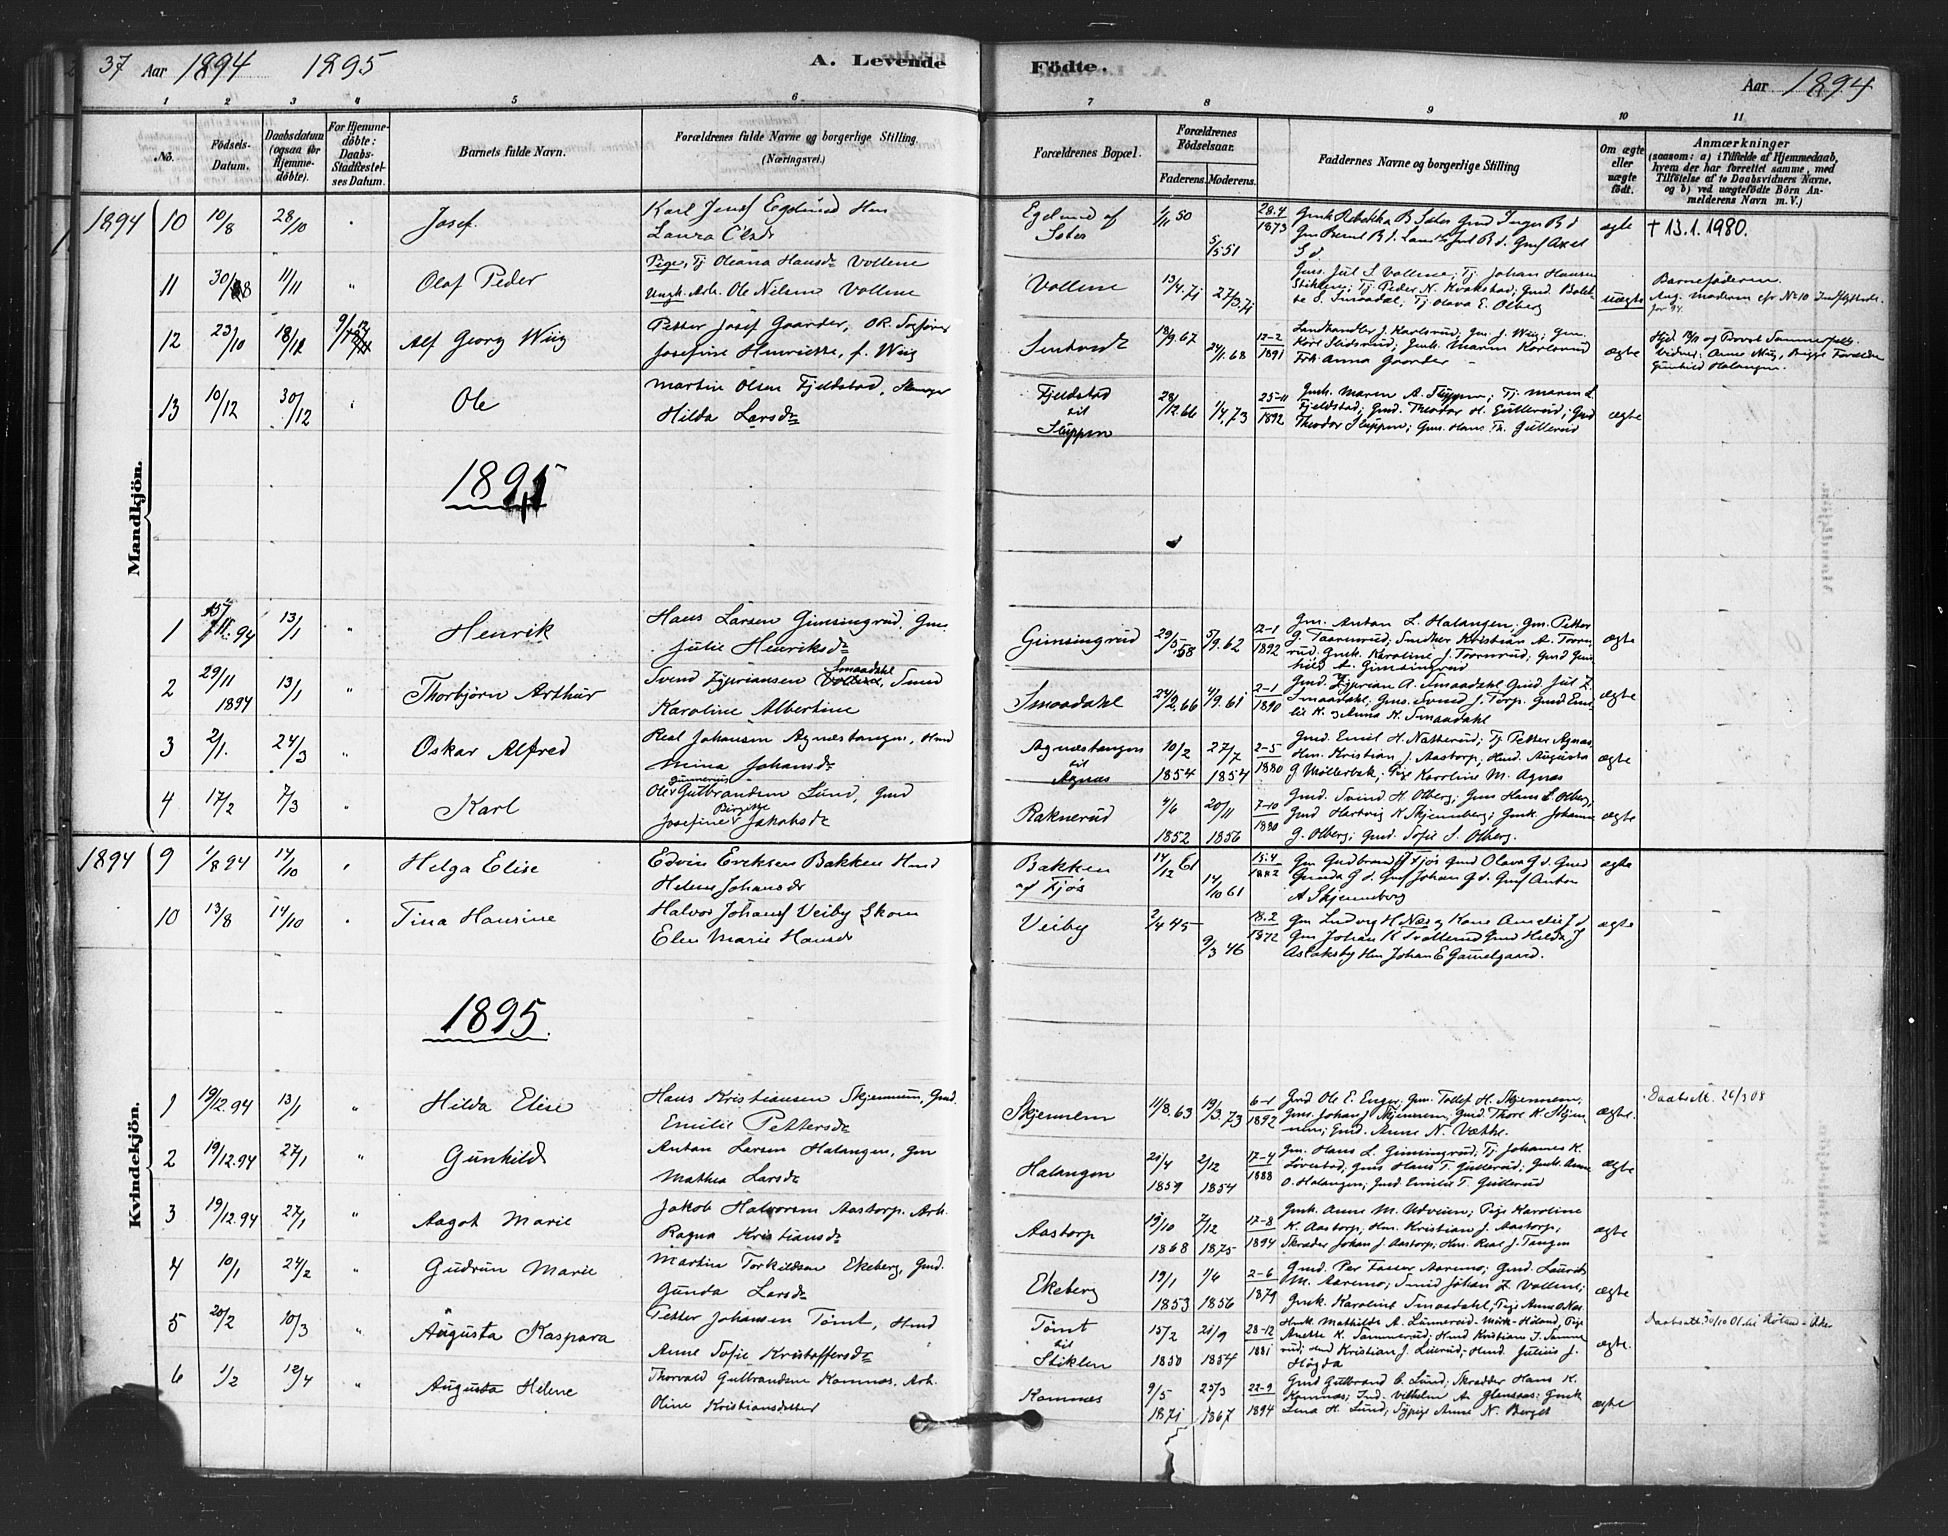 37 Aar 1894 1895 A. Levende
Födte. Aar 1894
1 2 3 4 5 6 7 8 9 10 11
No.
Födsels-
Datum.
Daabsdatum
(ogsaa for
Hjemme-
döbte).
For Hjemme-
döbte:
Daabs-
Stadfæstel-
ses Datum.
Barnets fulde Navn.
Forældrenes fulde Navne og borgerlige Stilling.
(Næringsvei.)
Forældrenes Bopæl.
Forældrenes
Födselsaar.
Faderens. Moderens.
Faddernes Navne og borgerlige Stilling
Om ægte
eller
uægte
født.
Anmærkninger
(saasom: a) i Tilfælde af Hjemmedaab,
hvem der har forrettet samme, med
Tilföielse af to Daabsvidners Navne,
og b) ved uægtefödte Börn An-
melderens Navn m. V.)
Mandkjön.
1894 10 10/8 28/10 " Josef.
Karl Egelund
Laura
Egelund af
1/11 50 5/5 51 28.4 1873
ægte † 13.1.1980.
11 30/8 11/11 " Olaf Peder
Pige, Tj. Oleana Hansdr Vollene
Ungk. Arb. Ole Nilsen Vollene
Vollene 13/4.71 27/3.71
Gms. Jul S. Vollene; Tj. Johan Hansen
Stiklen; Tj. Peder N. Kvakstad; Gmd.
S. Smaadal; Tj. Olava E. Olberg
uægte
Barnefaderen
12 23/10 18/12 Alf Georg Wiig
Petter Josef Gaarder, O.R. Sagfører
Josefine Henriette, f. Wiig
18/9 67 24/1.68 12-2 1891
Landhandler J. Karlsrud; Gm. J. Wiig; Gm.
Kåre Slidsrud; Gmk. Maren Karlsrud
Frk. Anna Gaarder
ægte
Vidner: Anne Berget
Gunhild Halangen.
13 10/12 30/12 Ole
Martin Olsen Fjeldstad,
Hilda Larsdr
Fjeldstad
til
Sluppen
28/12.66 1/4.73 25-11 1892
Gmk. Maren A. Sluppen; Tj. Maren L
Fjeldstad; Gmd. Theodor H. Gullerud; Gmd
Theodor Sluppen; Gms. Hans Th. Gullerud
ægte
1895
1 94 13/1 " Henrik
Hans Larsen Gimsingrud, Gm.
Julie Henriksdr
Gimsingrud 29/5.58 5/9.62 12-1 1892
Gm. Anton L. Halangen; Gm. Petter
G. Taarnrud; Snedker Kristian A. Tovrn-
rud; Gmk. Karoline J. Tovrnrud; Gmd Gun-
hild A. Gimsingrud
ægte
2 29/11 1894 13/1 " Thorbjørn Arthur
Svend Zypriansen Smaadahl, Smed
Karoline Albertine
Smaadahl 24/2.66 4/9.61 2-1 1890
Gmd. Zyprian A. Smaadahl Gmd. Jul Z.
Smaadahl; Gms. Svend J. Torp. Gmd Emi-
lie K. og Anna K. Smaadahl
ægte
3 2/1. 24/3 " Oskar Alfred
Real Johansen Agnæstangen, Hmd
Mina Johansdr
Agnæstangen
til
Agnæs
10/2 1854 27/7 1854 2-5 1880
Gmd. Emil H. Natterud; Tj. Petter Agnæs;
Hm. Kristian J. Aastorp; Hmd. Augusta
G. Møllerbek; Pige Karoline M. Agnæs
ægte
4 17/2 7/3 " Karl
Ole Gunnerius Gulbrandsen Lund, Gmd
Josefine Birgitte Jakobsdr
Raknerud 4/6 1852 20/11 1856 7-10 1880
Gmd. Svend H. Olberg; Gms Hans E. Olberg;
Gmd Hartvig K. Skjenneberg; Gmk. Johanne
G. Olberg; Gmd. Sofie S. Olberg.
ægte
Kvindekjön.
1894 9 1/8 94 14/10 " Helga Elise
Edvin Eriksen Bakken Hmd
Helene Johansdr
Bakken
af Fjøs
14/12 61 14/10 61 15.4 1882
Gm Gudbrand Fjøs Gmd Olava G d. Gmd
Gunda G d. Johan G d. Anton
A Skjenneberg
ægte
10 13/8 14/10 Tina Hansine
Halvor Johans Veiby Skom
Elen Marie Hansdr
Veiby 2/4 45 9/3 46 18.2 1872
Gm Ludvig H Næs og Kone Amelie J d
Gm Johan K Tvetterud Gmd Hilda J
Aslaksby Hm Johan E Gammelgaard.
ægte
1895.
1 19/12.94 13/1 " Hilda Elise
Hans Kristiansen Skjennum, Gmd.
Emilie Pettersdr
Skjennem 11/8.63 19/3.73 6-1 1892
Gmd Ole E. Enger, Gm. Tollef H. Skjennem;
Gms. Johan J. Skjennem; Gmd. Thore K. Skjen-
nem; Gmd. Anne N. Vætte.
ægte.
Daabsatt. 26/3 08
2 19/12.94 27/1 " Gunhild
Anton Larsen Halangen, Gm
Mathea Larsdr
Halangen 21/4 1859 2/12 1854 17-4 1888
Gm. Hans L. Gimsingrud; Tj. Johannes K.
Lövestad; Gms Hans T. Gullerud; Gmk. Anne
O. Halangen; Gmd. Emilie T. Gullerud
ægte
3 19/12.94 27/1 " Aagot Marie
Jakob Halvorsen Aastorp. Arb.
Ragna Kristiansdr
Aastorp 19/10 1868 7/12 1875 17-8 1894
Gmk. Anne M. Udveien; Pige Karoline
K. Aastorp; Hm. Kristian J. Aastorp;
Skræder Johan J. Aastorp; Hm. Real J. Tangen
ægte
4 10/1 24/2 " Gudrun Marie
Martin Torkildsen Ekeberg, Gmd.
Gunda Larsdr
Ekeberg 19/1 1853 1/6 1856 2-6 1879
Gmd. Per Aaremo; Gmd. Laurits
M. Aaremo; Smed Johan Z. Vollene;
Gmk. Karoline Smaadahl; Pige Anne O. Næs
ægte
5 20/2 10/3 " Augusta Kaspara
Petter Johansen Tömt, Hmd
Anne Sofie Kristoffersdr
Tömt
til
Stiklen
15/2 1850 21/9 1854 28-12 1881
Hmk. Mathilde A. Lunnerud-Mörk-Höland; Pige
Anette K. Sammerud; Hmd Kristian J. Samme-
rud; Hmd Kristian J. Lierud; Hmd. Julius J.
Högda
ægte.
Daabsatt. 30/10 01
6 1/2 12/4 " Augusta Helene
Thorvald Gulbrandsen Komnæs, Arb.
Oline Kristiansdatter
Komnæs 9/5 1871 25/3 1867 22-9 1894
Gmd Gulbrand O. Lund; Skrædder Hans K.
Komnæs; Ind. Vilhelm A. Glenaas; Gmk
Lina H. Lund; Sypige Anne N. Berget
ægte